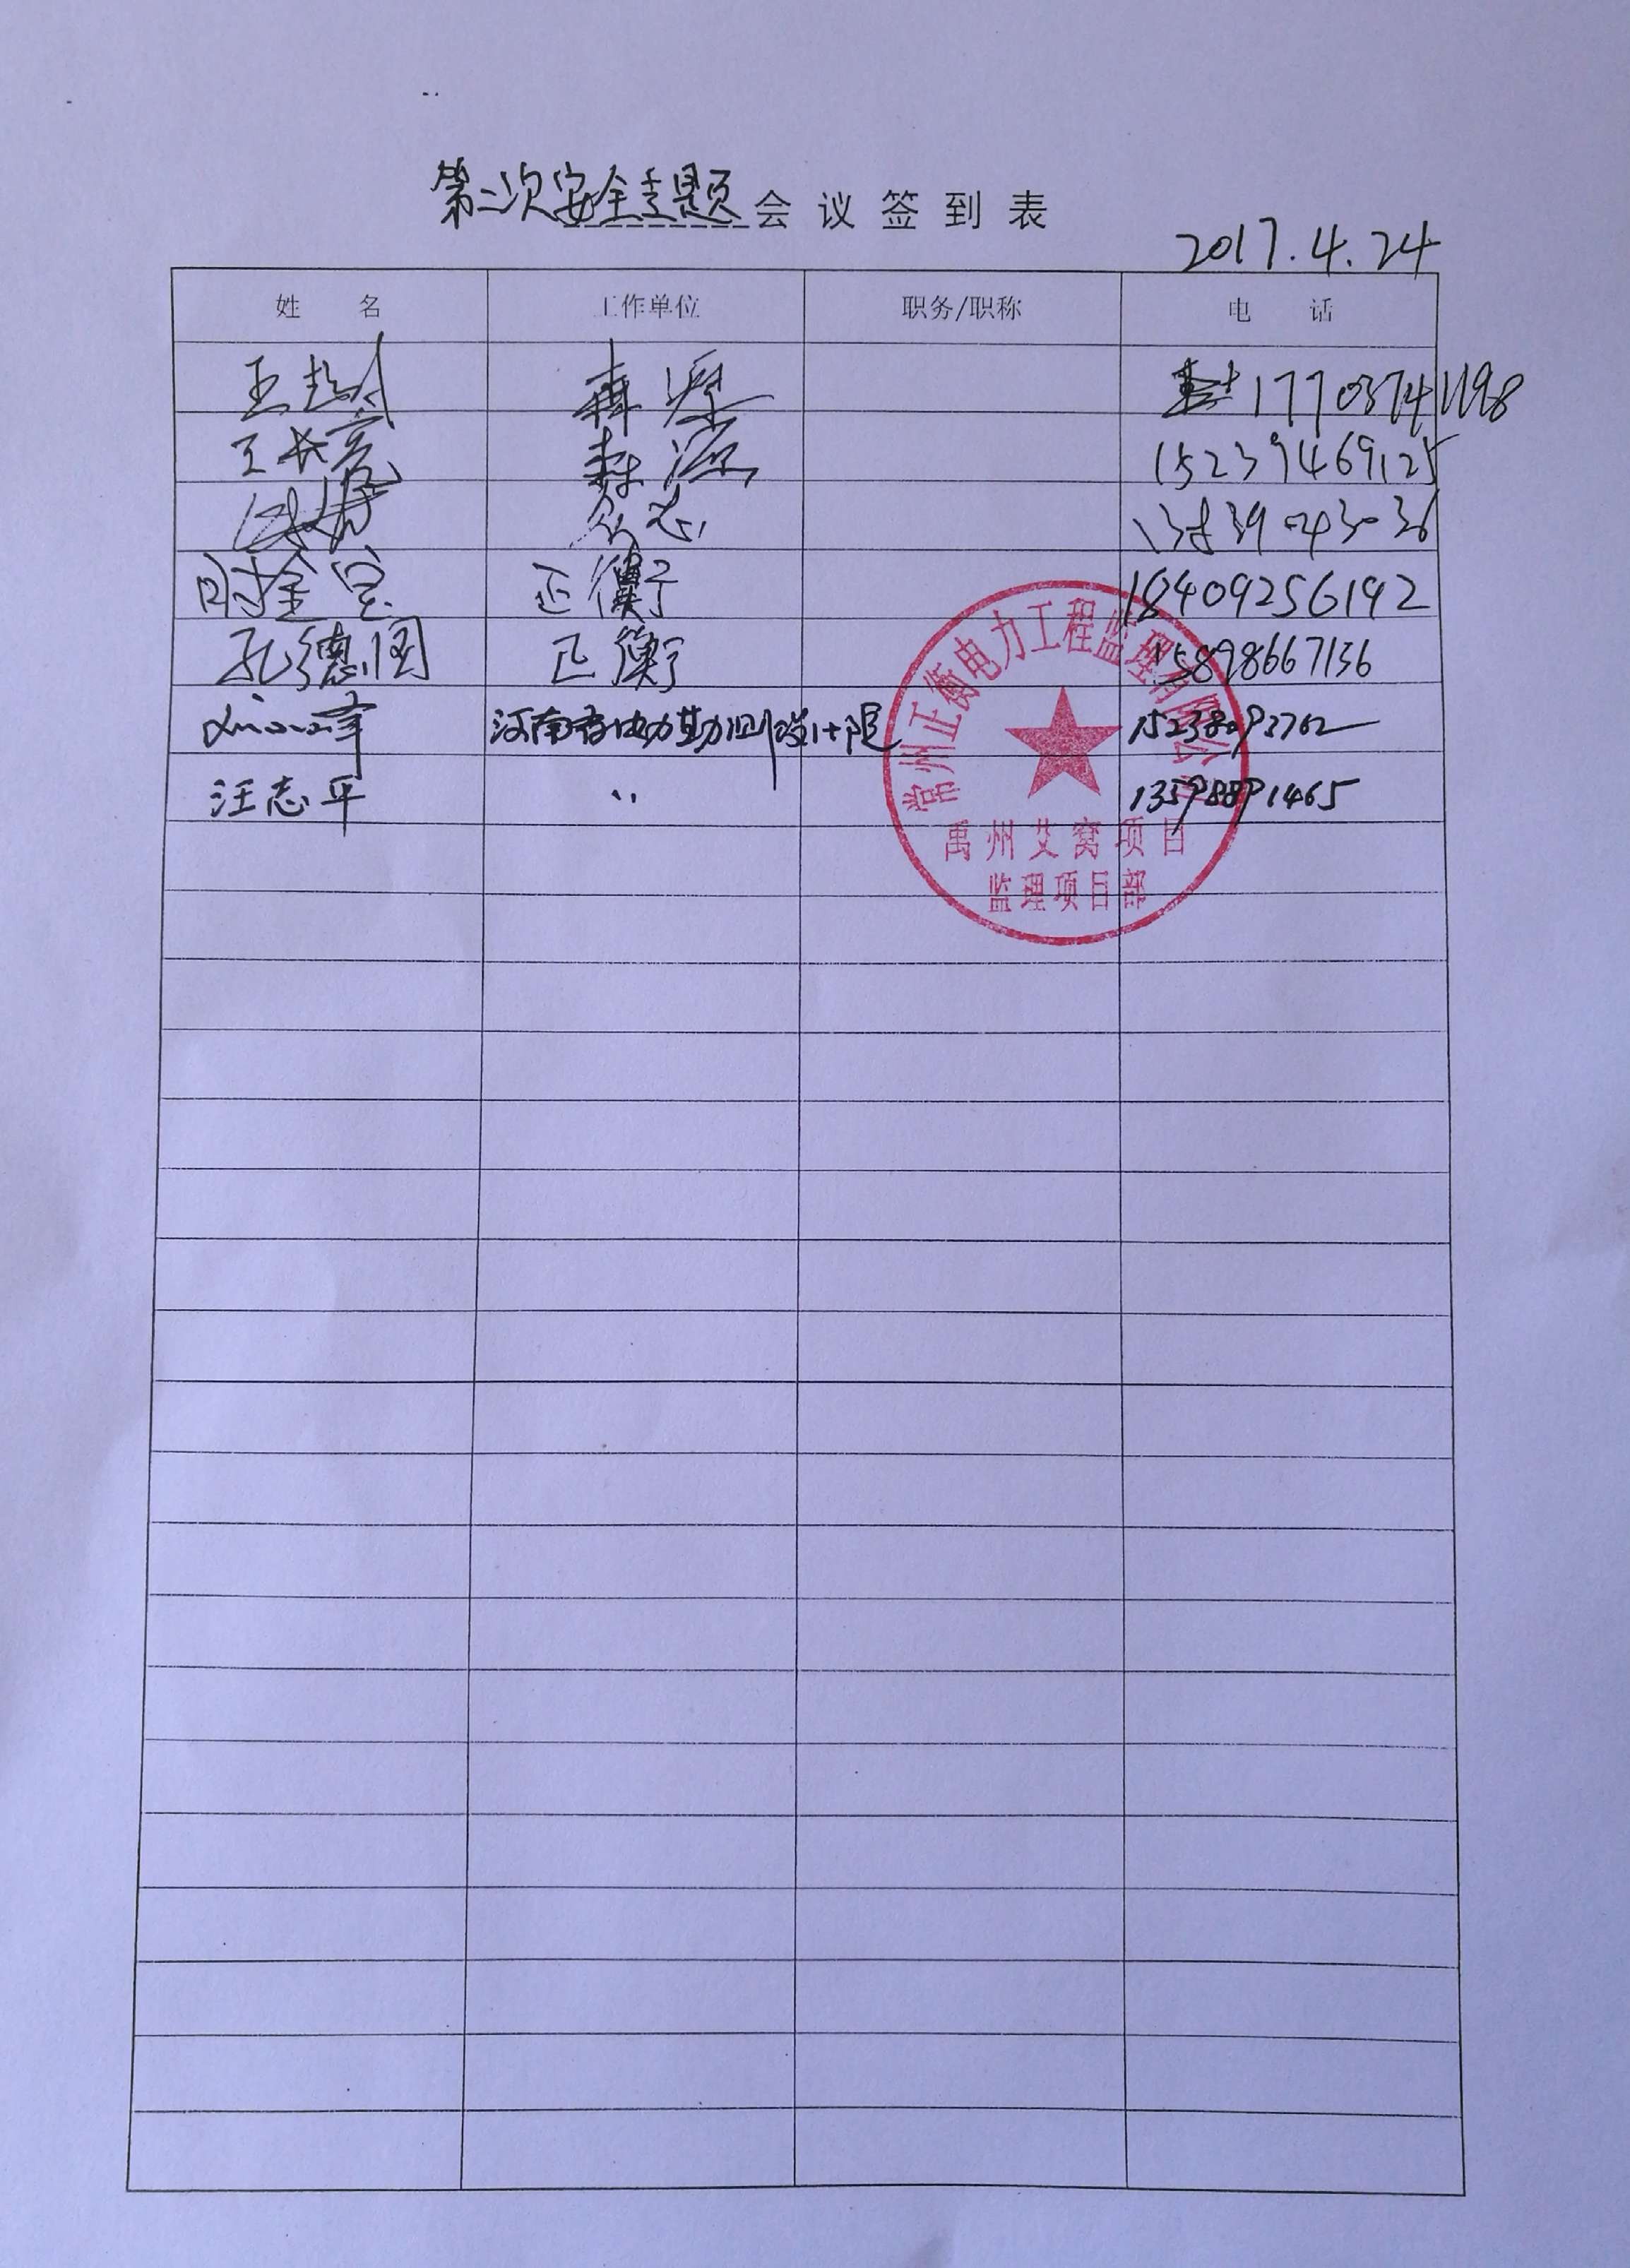 第二次安全专题会议签到表
2017.4.24
姓 名 工作单位 职务/职称 电 话
王 森源 17703741198
王 森源 15239469125
众志
时金宝 正衡 18409256192
孔德国 正衡 15898667136
峰 河南省 勘测设计院 15238093762
汪志平 〃 13598891465
常州正衡电力工程监理有限公司
禹州文窝项目
监理项目部